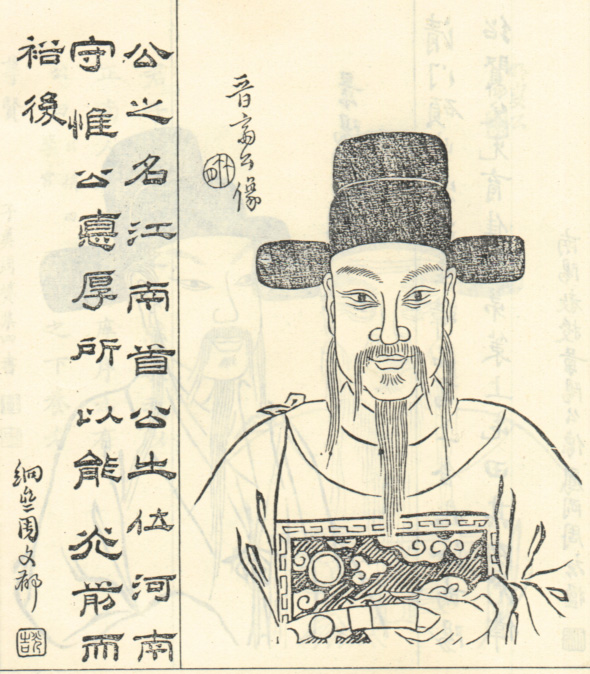 晉齋公像
公之名江南首公之位河南
守惟公悳厚所以能光前而
裕後
周文